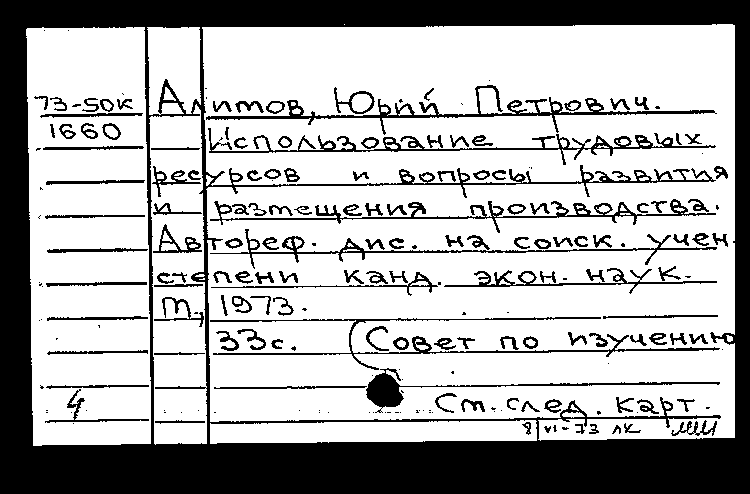 73-50к Алитов, Юрий Петрович.
1660 Использование трудовых
ресурсов и вопросы развития
и размещения производства.
Автореф. дис. на соиск. учен.
степени канд. экон. наук.
М., 1973.
33с. (Совет по изучению
4 См. след. карт.
8/VI-73 ЛК